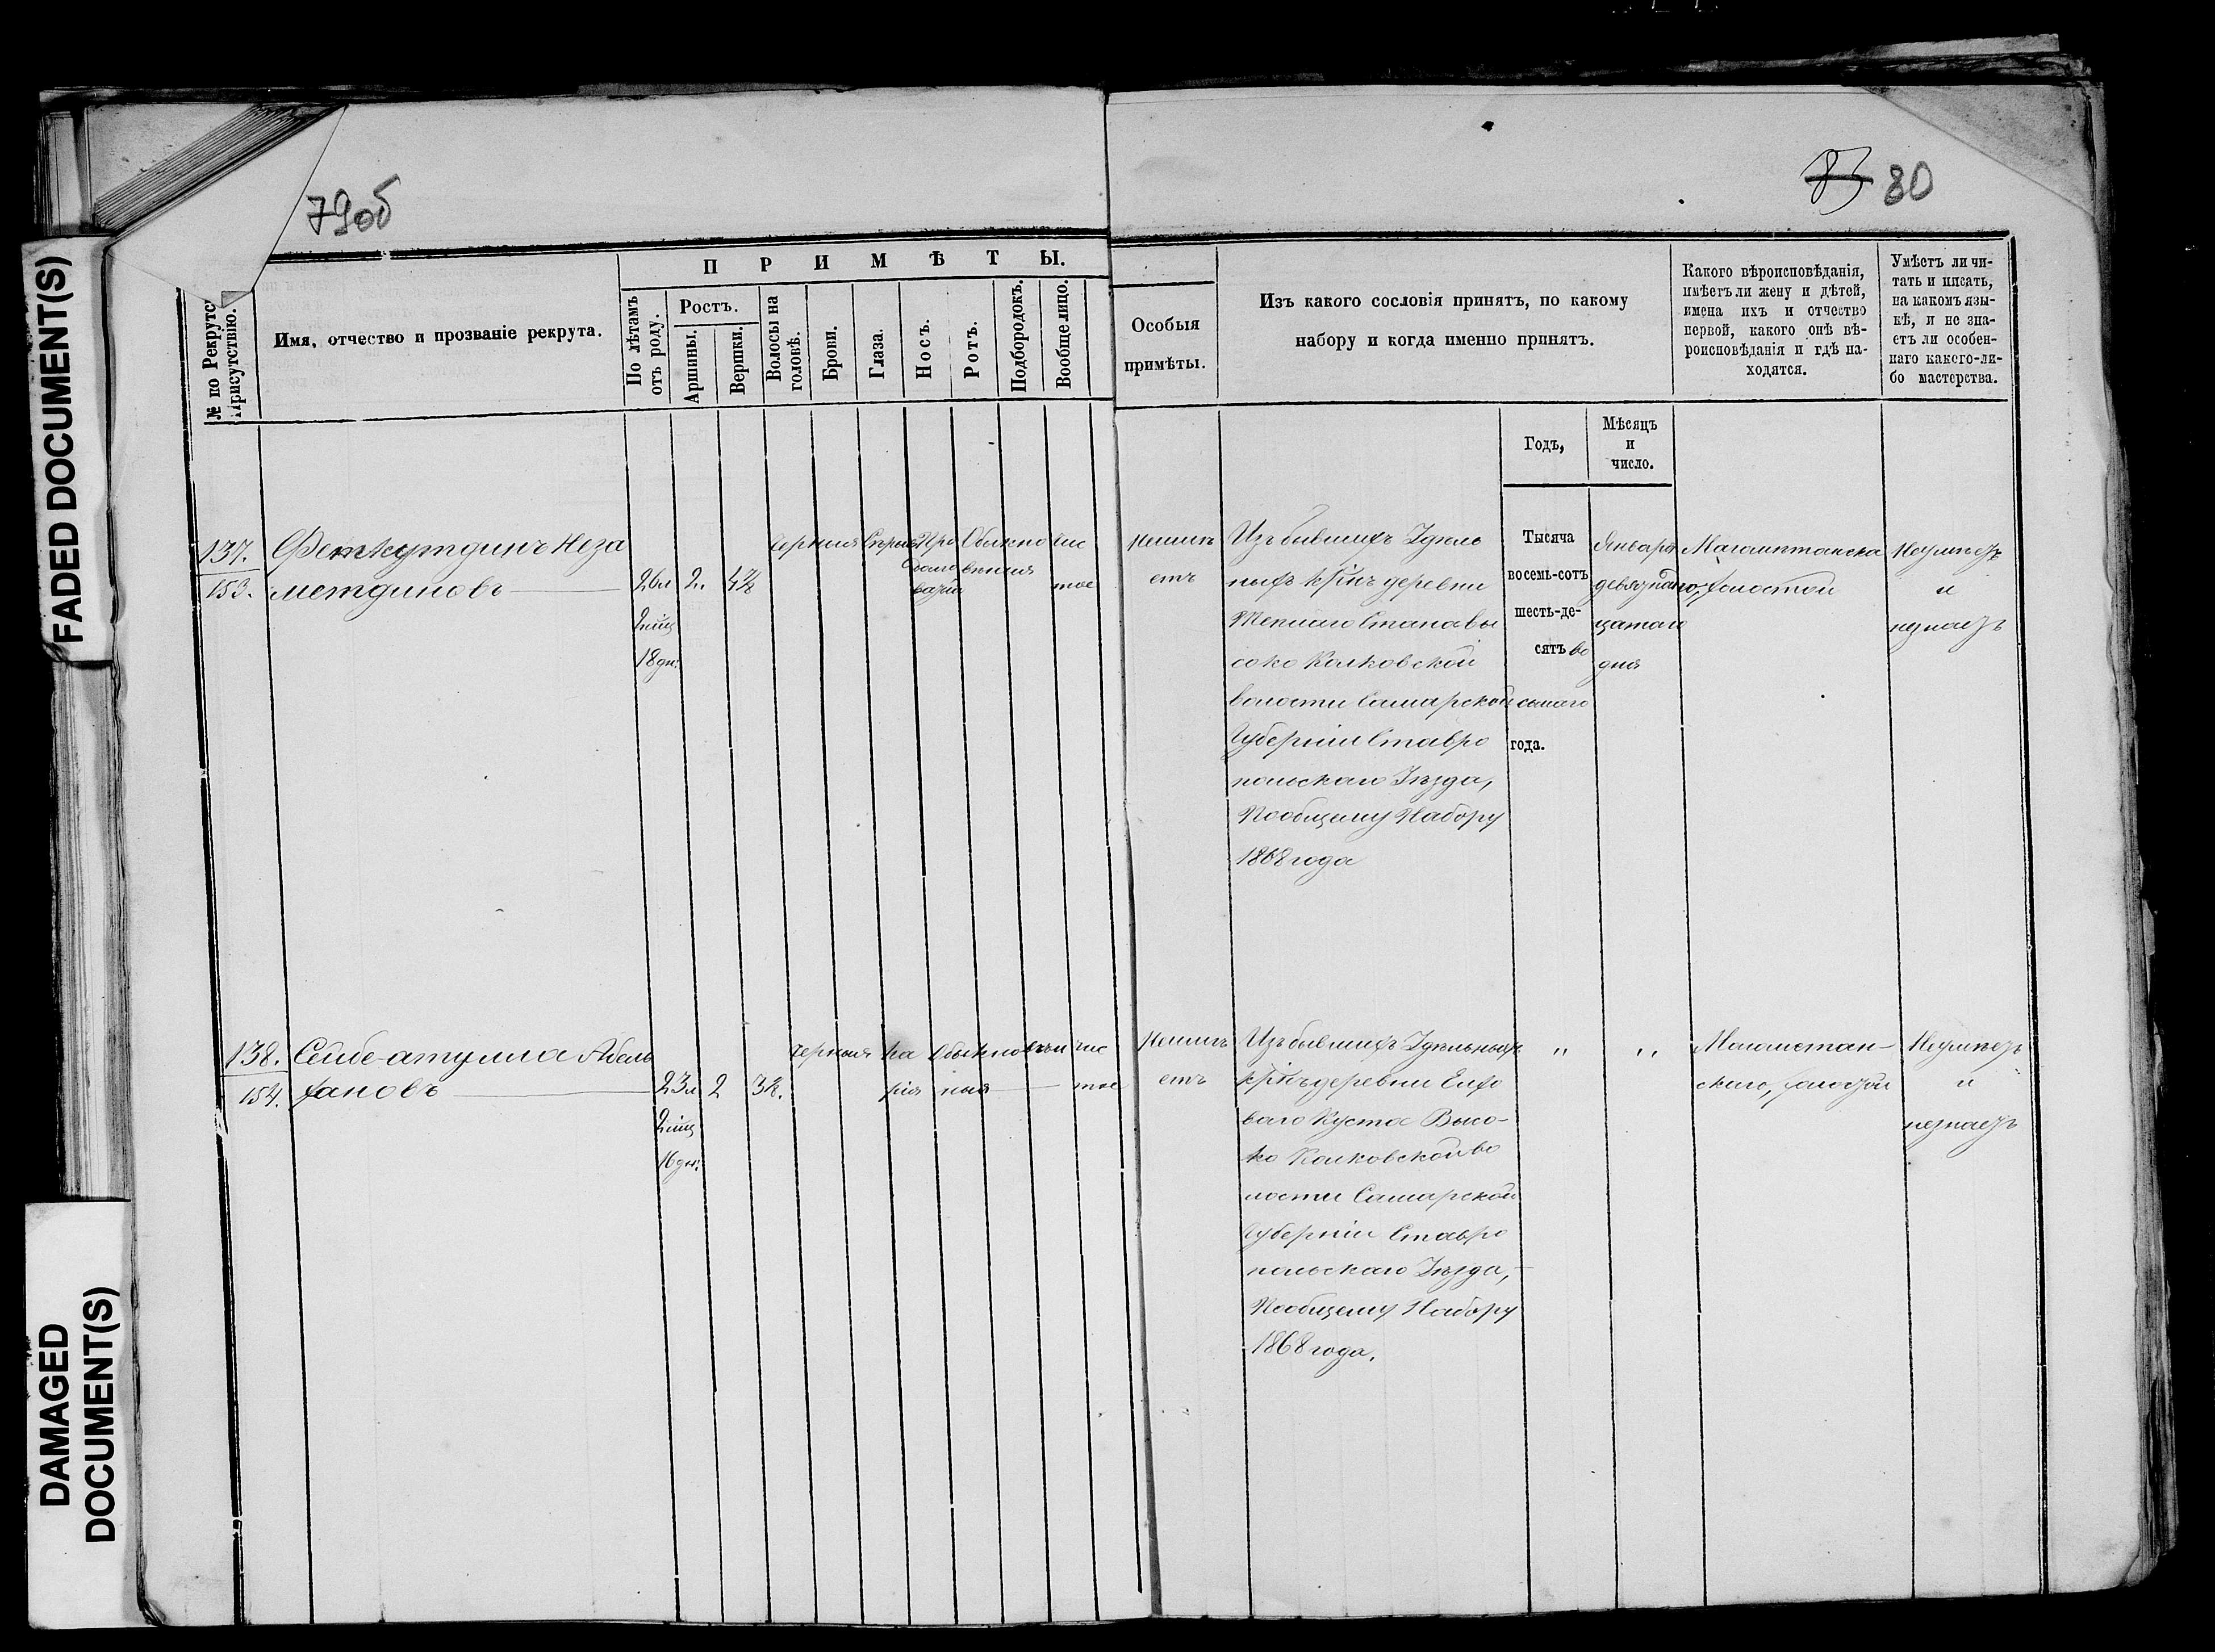 79об
83 80
FADED DOCUMENT(S)
DAMAGED
DOCUMENT(S)
№ по Рекрутс
Присутствію.
Имя, отчество и прозваніе рекрута.
ПРИМѢТЫ.
По лѣтамъ
отъ роду.
Ростъ.
Аршины.
Вершки.
Волосы на
головѣ.
Брови.
Глаза.
Носъ.
Ротъ.
Подбородокъ.
Вообще лицо.
Особыя
примѣты.
Изъ какого сословія принятъ, по какому
набору и когда именно принятъ.
Годъ,
Мѣсяцъ
и
число.
Какого вѣроисповѣданія,
имѣетъ ли жену и дѣтей,
имена ихъ и отчество
первой, какого онѣ вѣ-
роисповѣданія и гдѣ на-
ходятся.
Умѣетъ ли чи-
тать и писать,
на какомъ язы-
кѣ, и не зна-
етъ ли особен-
наго какого-ли-
бо мастерства.
137.
153.
Феткутдинъ Неза
метдиновъ
26л
2мц
18дн.
2.
4⅞
черныя
Сѣрые
Обыкно
венныя
чис
тое
Неимѣ
етъ
Изъ бывшихъ Удѣль
ныхъ крнъ деревни
Стана вы
соко Колковской
волости Самарской
Губерніи Ставро
польскаго Уѣзда,
По общему Набору
1868 года
Тысяча
восемь-сотъ
шесть-де-
сятъ во
сьмаго
года.
Января
девятнад
цатаго
дня
Магаметанска
го, холостой
Неумѣетъ
и
незнаетъ
138.
154.
Сейбе-атулла Абель
хановъ
23л
2мц
16дн.
2
черныя
ка
рія
Обыкновен
ныя
чис
тое
Неимѣ
етъ
Изъ бывшихъ Удѣльныхъ
крнъ деревни Елхо
ваго Куста Высо-
ко Колковской во
лости Самарской
Губерніи Ставро
польскаго Уѣзда,
По общему Набору
1868 года.
"
"
Магаметан-
скаго, холостой
Неумѣетъ
и
незнаетъ